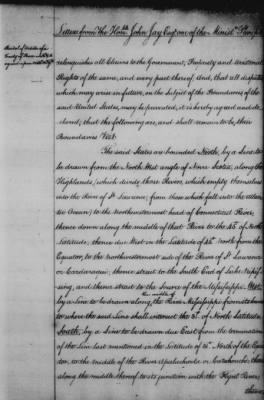 Letters from The Hon:ble John Jay Esqr. one of the Minist: Plenipot:
relinquishes all Claims to the Government, Property and territorial
Rights of the same, and every part thereof. And, that all disputes
which may arise in future, on the Subject of the Boundaries of the
said United States, may be prevented, it is hereby agreed and de-
clared, that the following are, and shall remain to be, their
Boundaries Viz:
The said States are bounded North, by a Line to
be drawn from the North West angle of Nova Scotia, along the
Highlands, which divide those Rivers, which empty themselves
into the River St. Laurence, from those which fall into the atlan-
tic Ocean, to the northwesternmost head of Connecticut River,
thence down along the middle of that River to the 45° of North
Latitude, thence due West in the Latitude of 45° North from the
Equator, to the northwesternmost side of the River St. Laurence
or Cardaraqui; thence strait to the South End of Lake Nipis-
sing, and thence strait to the Source of the Mississippi. West,
by a Line to be drawn along the middle of the River Mississippi from its Source
to where the said Line shall intersect the 31° of North Latitude.
South, by a Line to be drawn due East from the termination
of the Line last mentioned in the Latitude of 31° North of the Equa-
tor, to the middle of the River Apalachicola or Catahouche, thence
along the middle thereof to its junction with the Flynt River,
thence